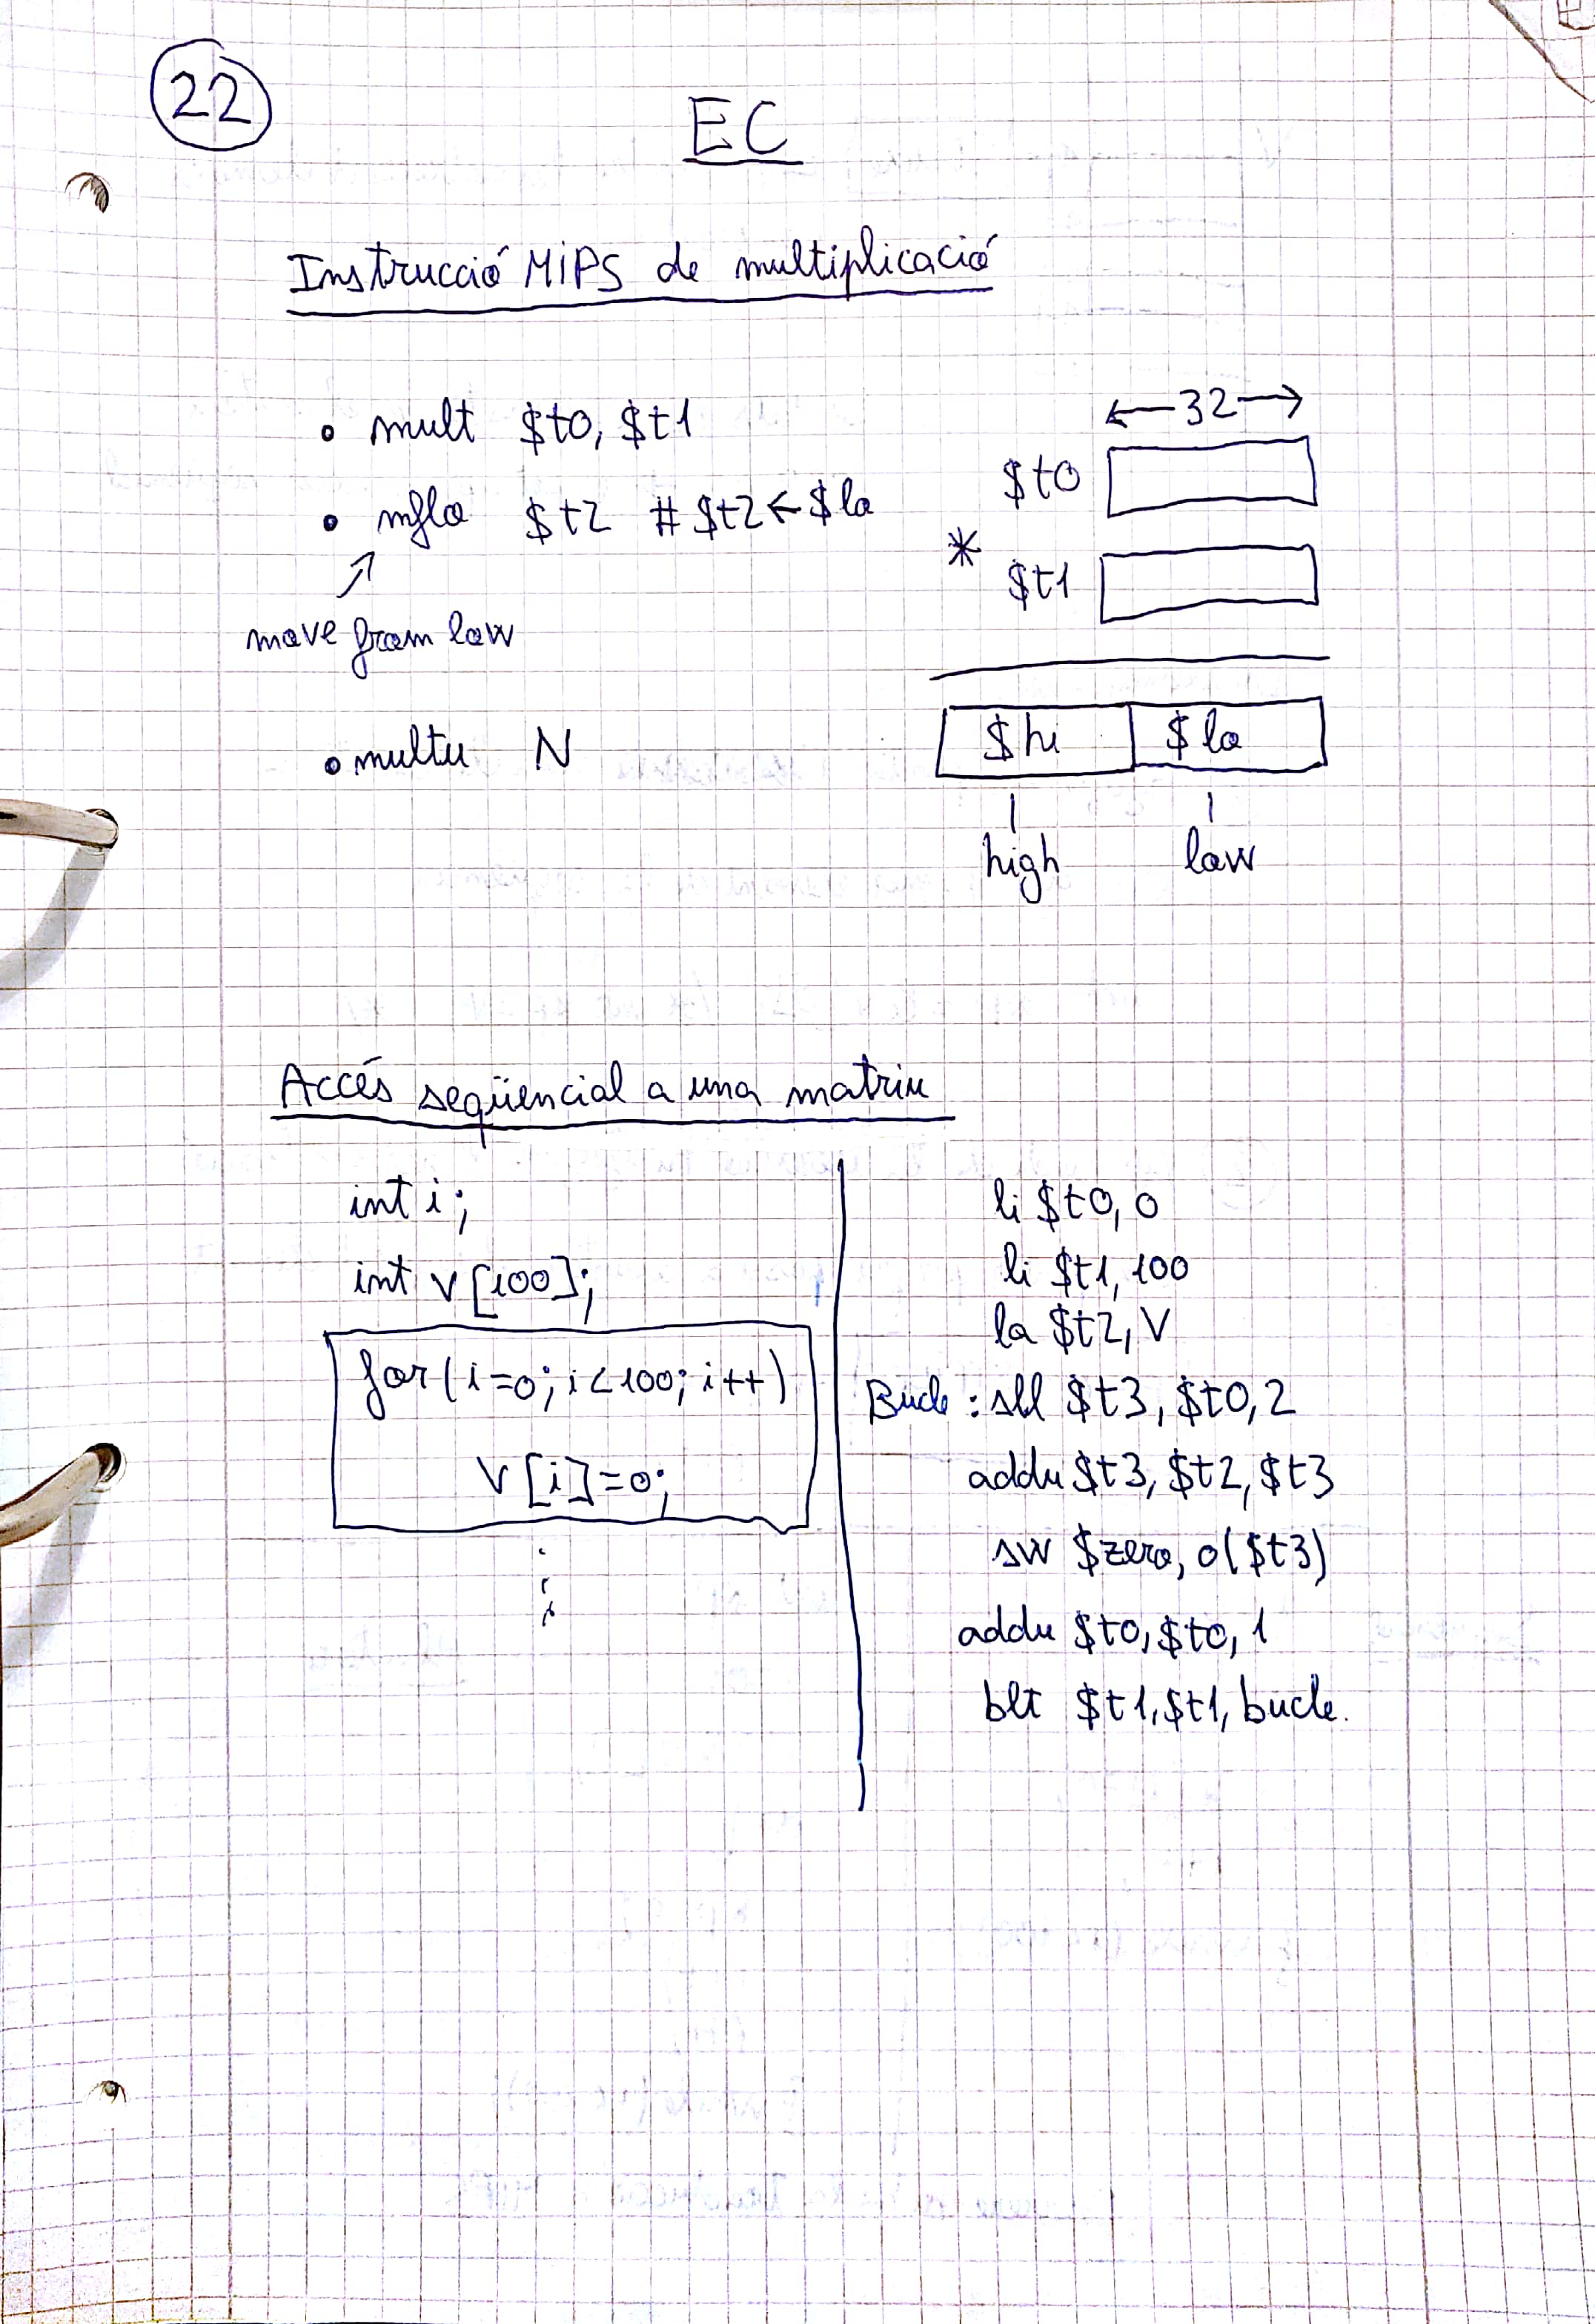 22
EC
Instrucció MIPS de multiplicació
• mult $t0, $t1
• mflo $t2 # $t2 ← $lo
move from low
• multu N
← 32 →
$t0
* $t1
$hi $lo
high low
Accés seqüencial a una matriu
int i;
int V[100];
for(i=0; i<100; i++)
V[i]=0;
li $t0, 0
li $t1, 100
la $t2, V
Bucle: sll $t3, $t0, 2
addu $t3, $t2, $t3
sw $zero, 0($t3)
addu $t0, $t0, 1
blt $t1, $t1, bucle.